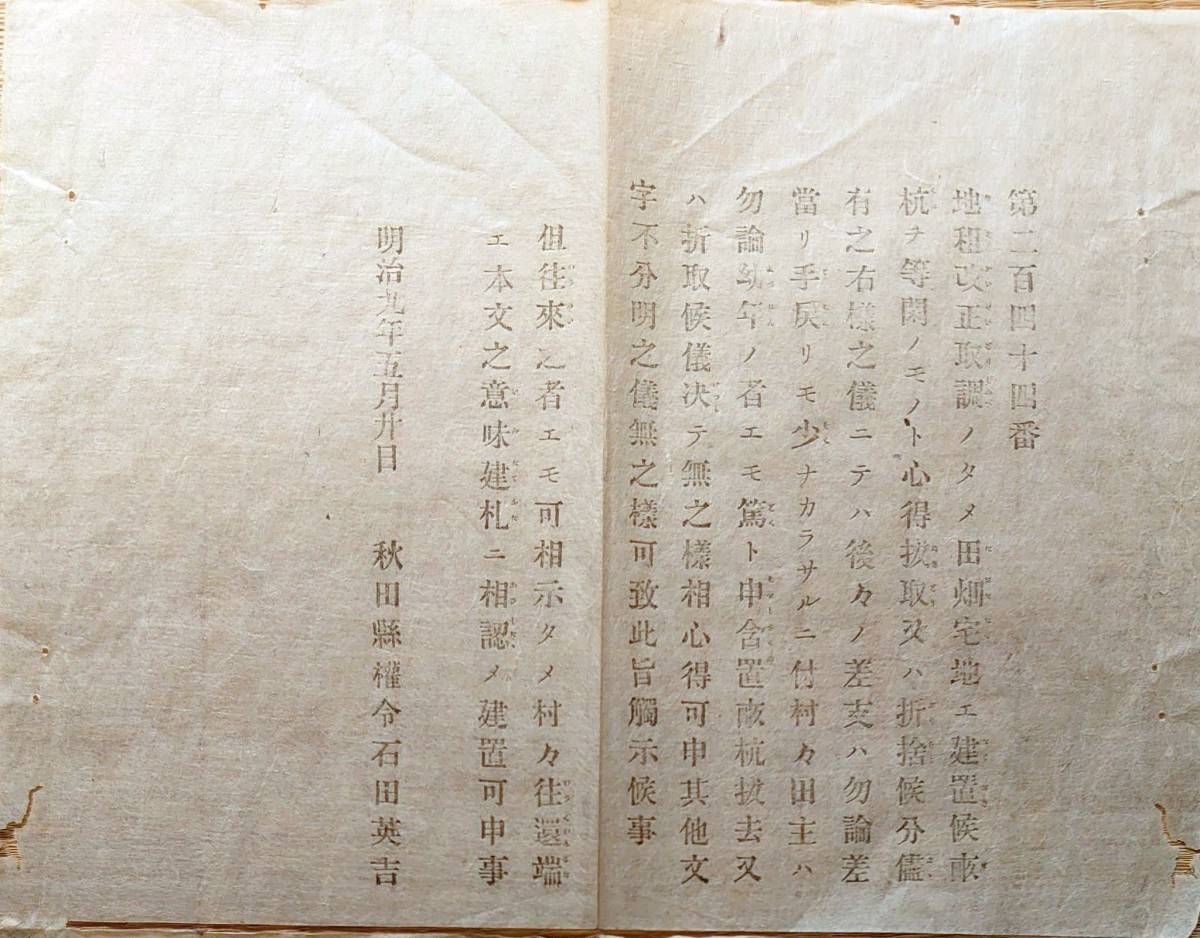 第二百四十四番
地租改正取調ノタメ田畑宅地エ建置候畝
杭ヲ等閑ノモノト心得拔取又ハ折捨候分儘
有之右樣之儀ニテハ後々ノ差支ハ勿論差
當リ手戻リモ少ナカラサルニ付村々田主ハ
勿論幼年ノ者エモ篤ト申含置畝杭拔去又
ハ折取候儀决テ無之樣相心得可申其他文
字不分明之儀無之樣可致此旨觸示候事
但往來之者エモ可相示タメ村々往還端
エ本文之意味建札ニ相認メ建置可申事
明治九年五月廾日 秋田縣權令石田英吉